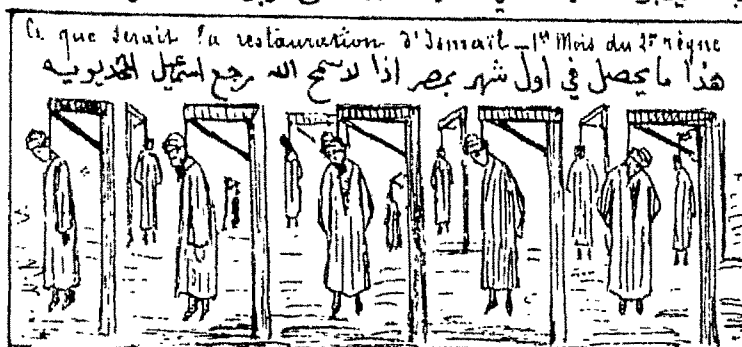 Ce que serait la restauration d'Ismaïl _ 1er Mois du 2e règne
هذا ما يحصل في اول شهر بمصر اذا لاسمح الله مرجع اسمعيل الخديويه